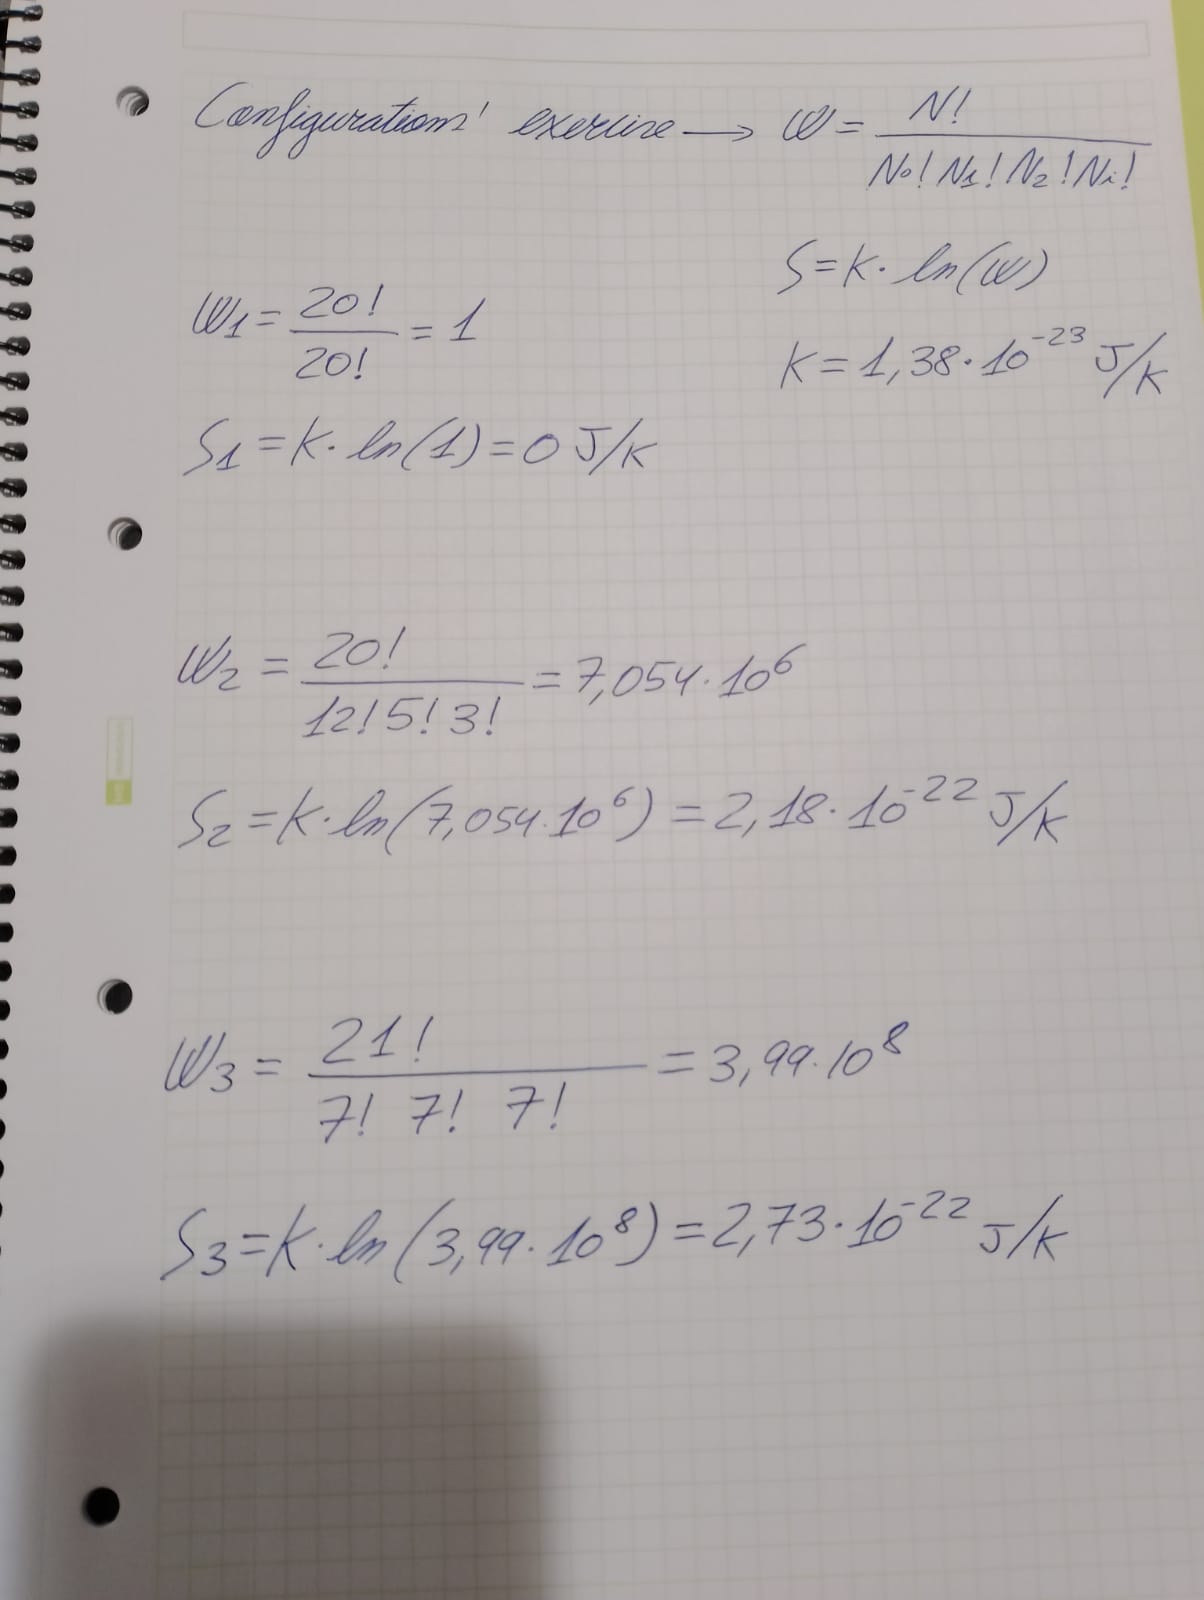 Configurations' exercise → W = N! / N₀! N₁! N₂! Nᵢ!
S = K · ln(W)
W₁ = 20! / 20! = 1
K = 1,38 · 10⁻²³ J/K
S₁ = K · ln(1) = 0 J/K
W₂ = 20! / 12! 5! 3! = 7,054 · 10⁶
S₂ = K · ln(7,054 · 10⁶) = 2,18 · 10⁻²² J/K
W₃ = 21! / 7! 7! 7! = 3,99 · 10⁸
S₃ = K · ln(3,99 · 10⁸) = 2,73 · 10⁻²² J/K